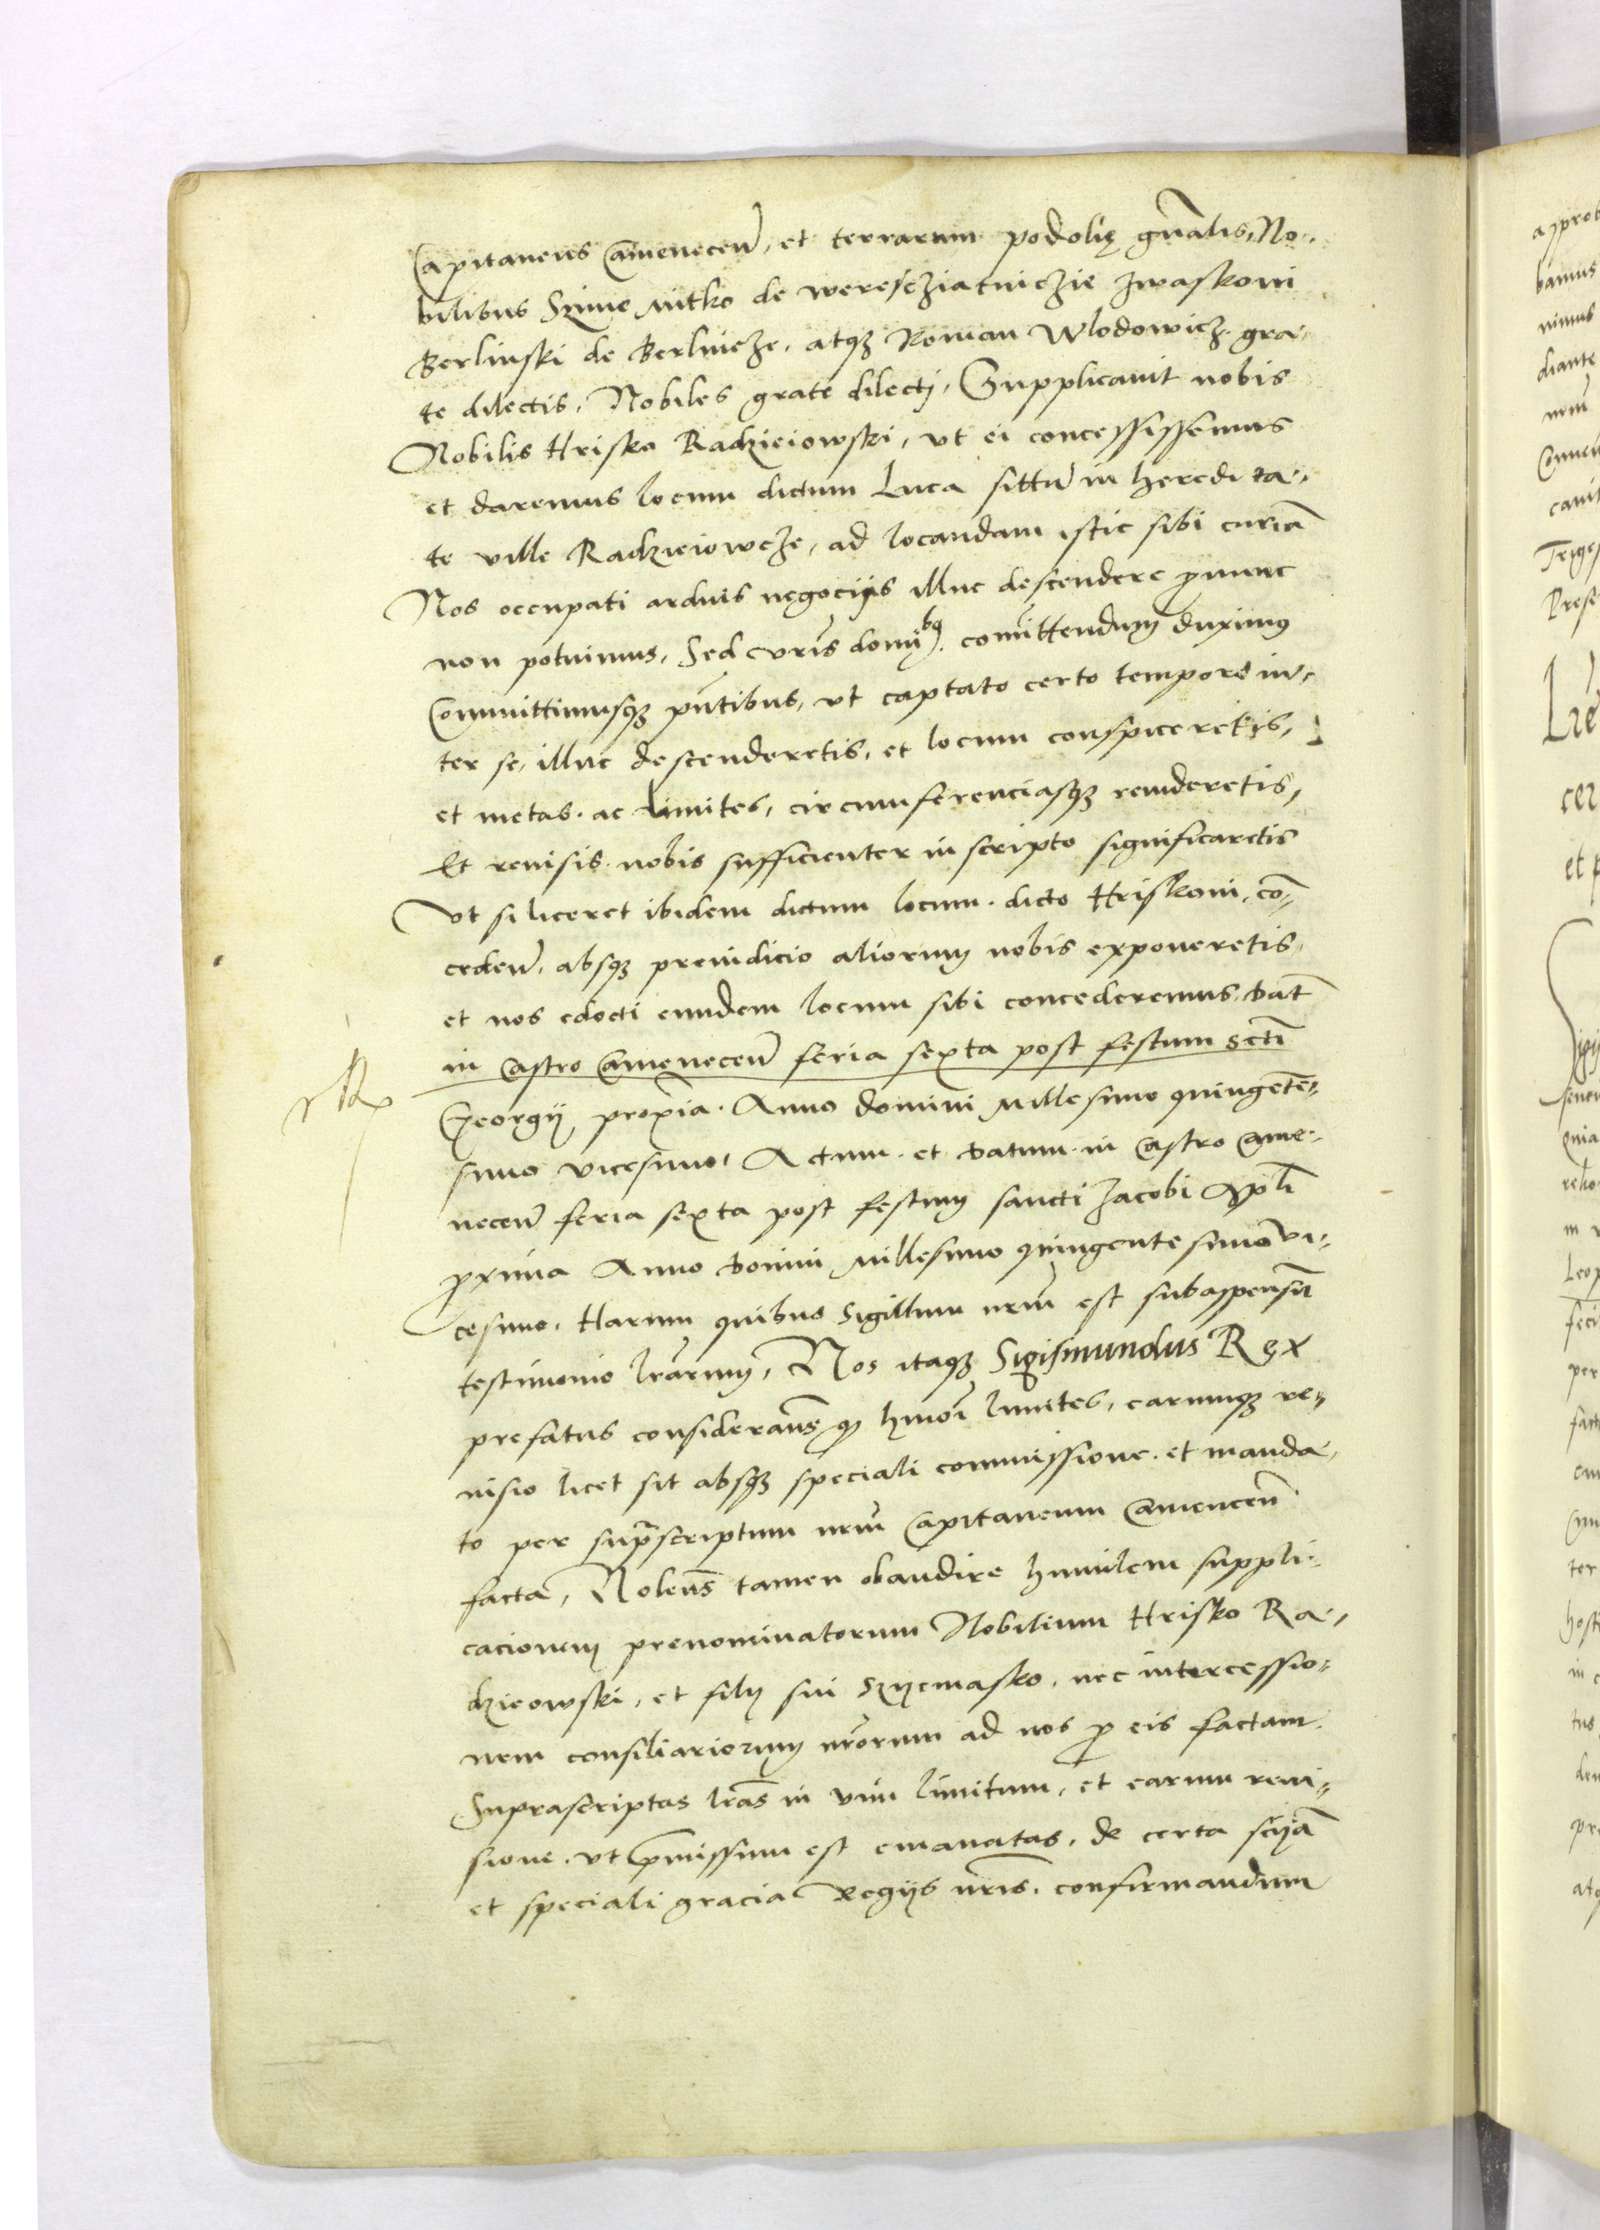 Capitaneus Camenecen̄, et terrarum podolię gn̄alis, No-
bilibus Szime Mitko de wereschiatnichie Iwaskoni
Berlinski de Berlincze, atqꝫ Roman Wlodowicz gra-
te dilectis, Nobiles grate dilecti, Supplicavit nobis
Nobilis Hrisko Radzieiowski, vt ei concessissemus
et daremus locum dictum Luca sittū in heredita-
te ville Radzieiowcze, ad locandam istic sibi curiā
Nos occupati arduis negocijs illuc descendere ꝓnunc
non potuimus, Sed vr̄is domī bꝯ comittendum duximus
Committimusqꝫ pn̄tibus, vt captato certo tempore in-
ter se, illuc descenderetis, et locum conspiceretis,
et metas ac limites, circumferenciasqꝫ reuideretis,
Et reuisis nobis sufficienter in scripto significaretis
Vt si liceret ibidem dictum locum dicto Hriskoni, cō-
ceden̄, absqꝫ preiudicio aliorum nobis exponeretis,
et nos edocti eundem locum sibi concederemus, Dat̄
in Castro Camenecen̄ feria sexta post festum sctī
Georgij proxīa. Anno domini Millesimo quingente-
simo vicesimo, Actum et Datum in Castro Came-
necen̄ feria sexta post festum sancti Iacobi Apl̄i
ꝓxima Anno Domini Millesimo quingentesimo vi-
cesimo, Harum quibus Sigillum nr̄um est subappensū
testimonio lr̄arum, Nos itaqꝫ Sigismundus Rex
prefatus considerans ꝙ hmōi limites, earumqꝫ re-
uisio licet sit absqꝫ speciali commissione et manda-
to per suprascriptum nr̄um Capitaneum Camenecen̄
facta, Nolens tamen obaudire humilem suppli-
cacionem prenominatorum Nobilium Hrisko Ra-
dzieowski, et filij sui Szyemasko, nec intercessio-
nem consiliariorum nr̄orum ad nos ꝓ eis factam
Suprascriptas lr̄as in vim limitum, et earum reui-
sione, vt p̄missum est emanatas, de certa sciā
et speciali gracia Regijs nr̄is, confirmandum